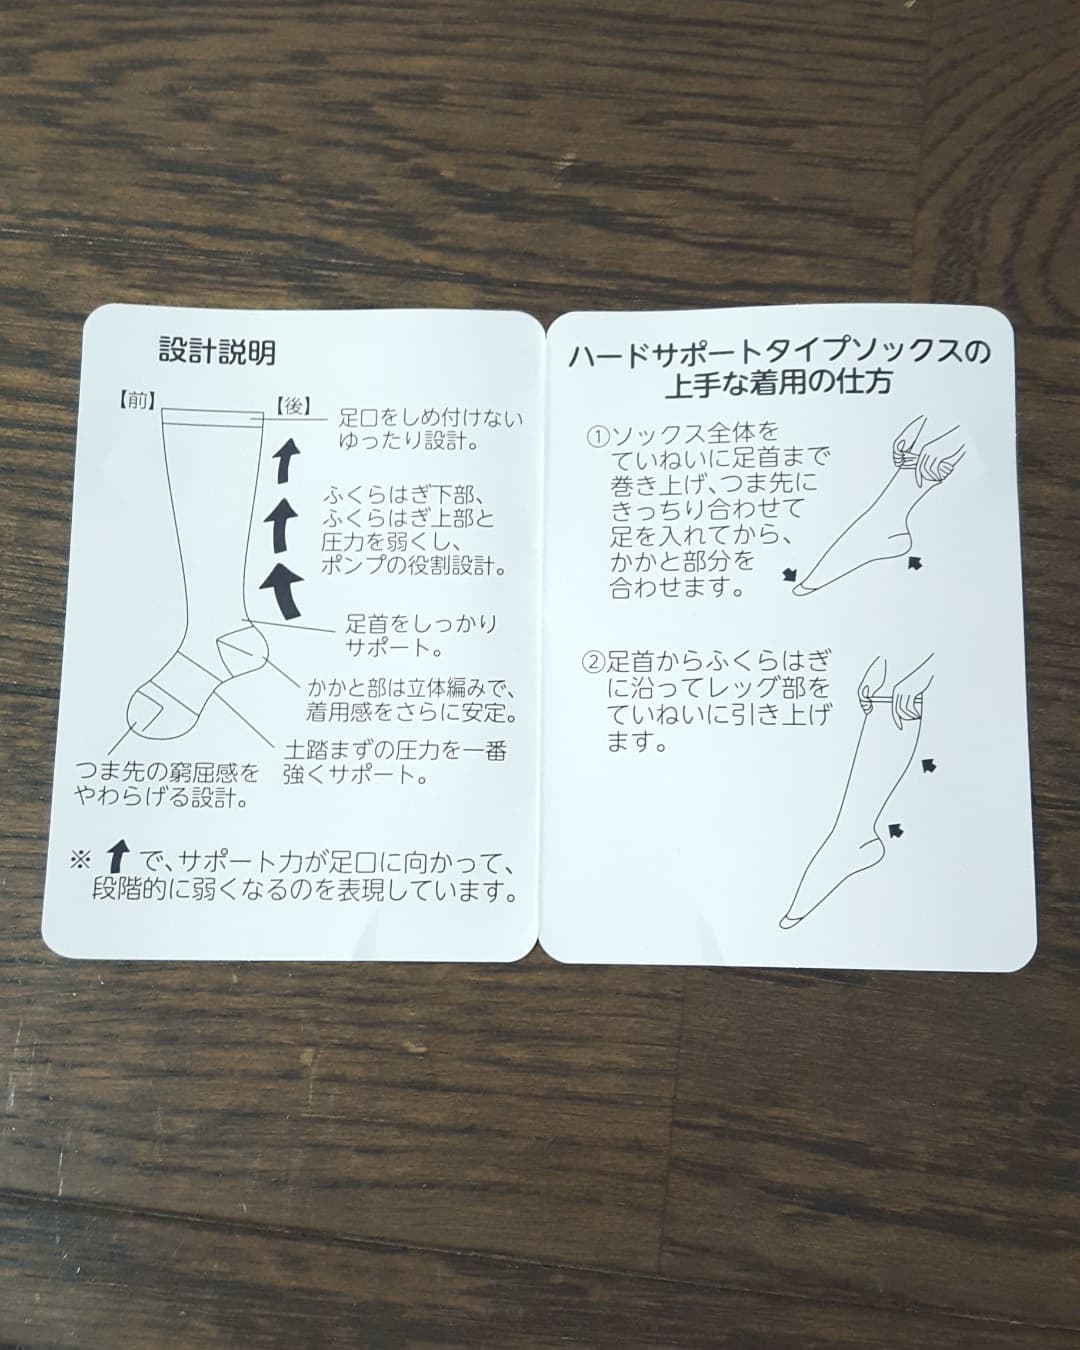 設計説明
【前】
【後】
足口をしめ付けない
ゆったり設計。
ふくらはぎ下部、
ふくらはぎ上部と
圧力を弱くし、
ポンプの役割設計。
足首をしっかり
サポート。
かかと部は立体編みで、
着用感をさらに安定。
土踏まずの圧力を一番
強くサポート。
つま先の窮屈感を
やわらげる設計。
※ で、サポート力が足口に向かって、
段階的に弱くなるのを表現しています。
ハードサポートタイプソックスの
上手な着用の仕方
①ソックス全体を
ていねいに足首まで
巻き上げ、つま先に
きっちり合わせて
足を入れてから、
かかと部分を
合わせます。
②足首からふくらはぎ
に沿ってレッグ部を
ていねいに引き上げ
ます。